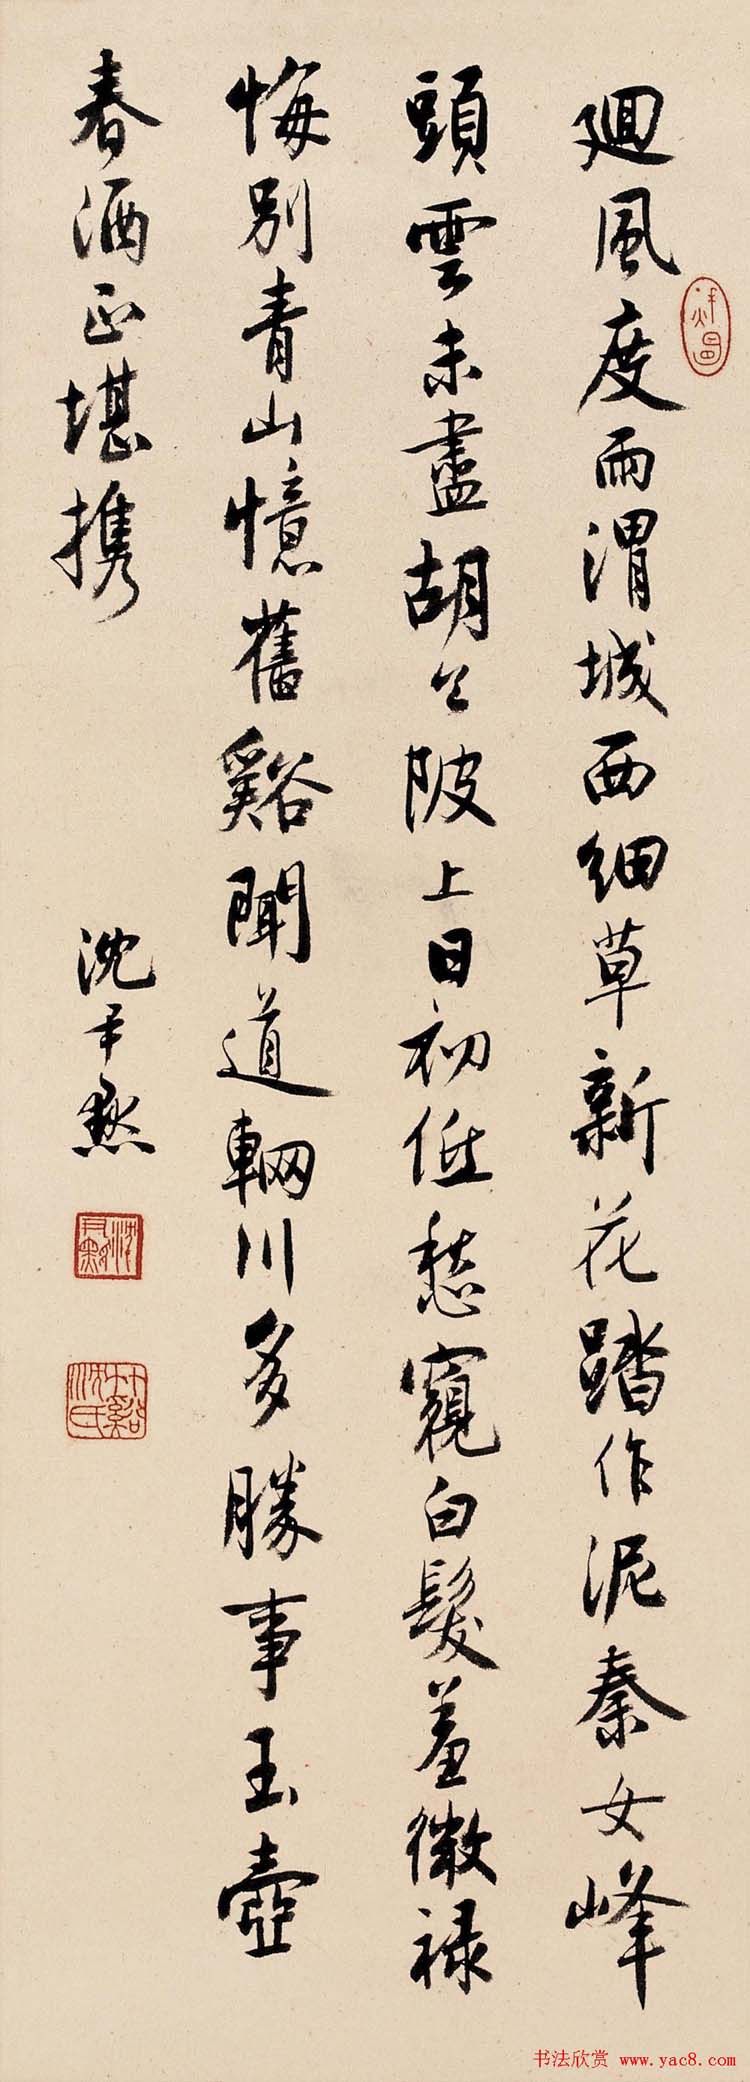 廻風度雨渭城西細草新花踏作泥秦女峰
頭雲未盡胡公陂上日初低愁窺白髮羞微祿
悔別青山憶舊谿聞道輞川多勝事玉壺
春酒正堪携
沈尹默
沈尹默
竹谿沈氏
书法欣赏 www.yac8.com